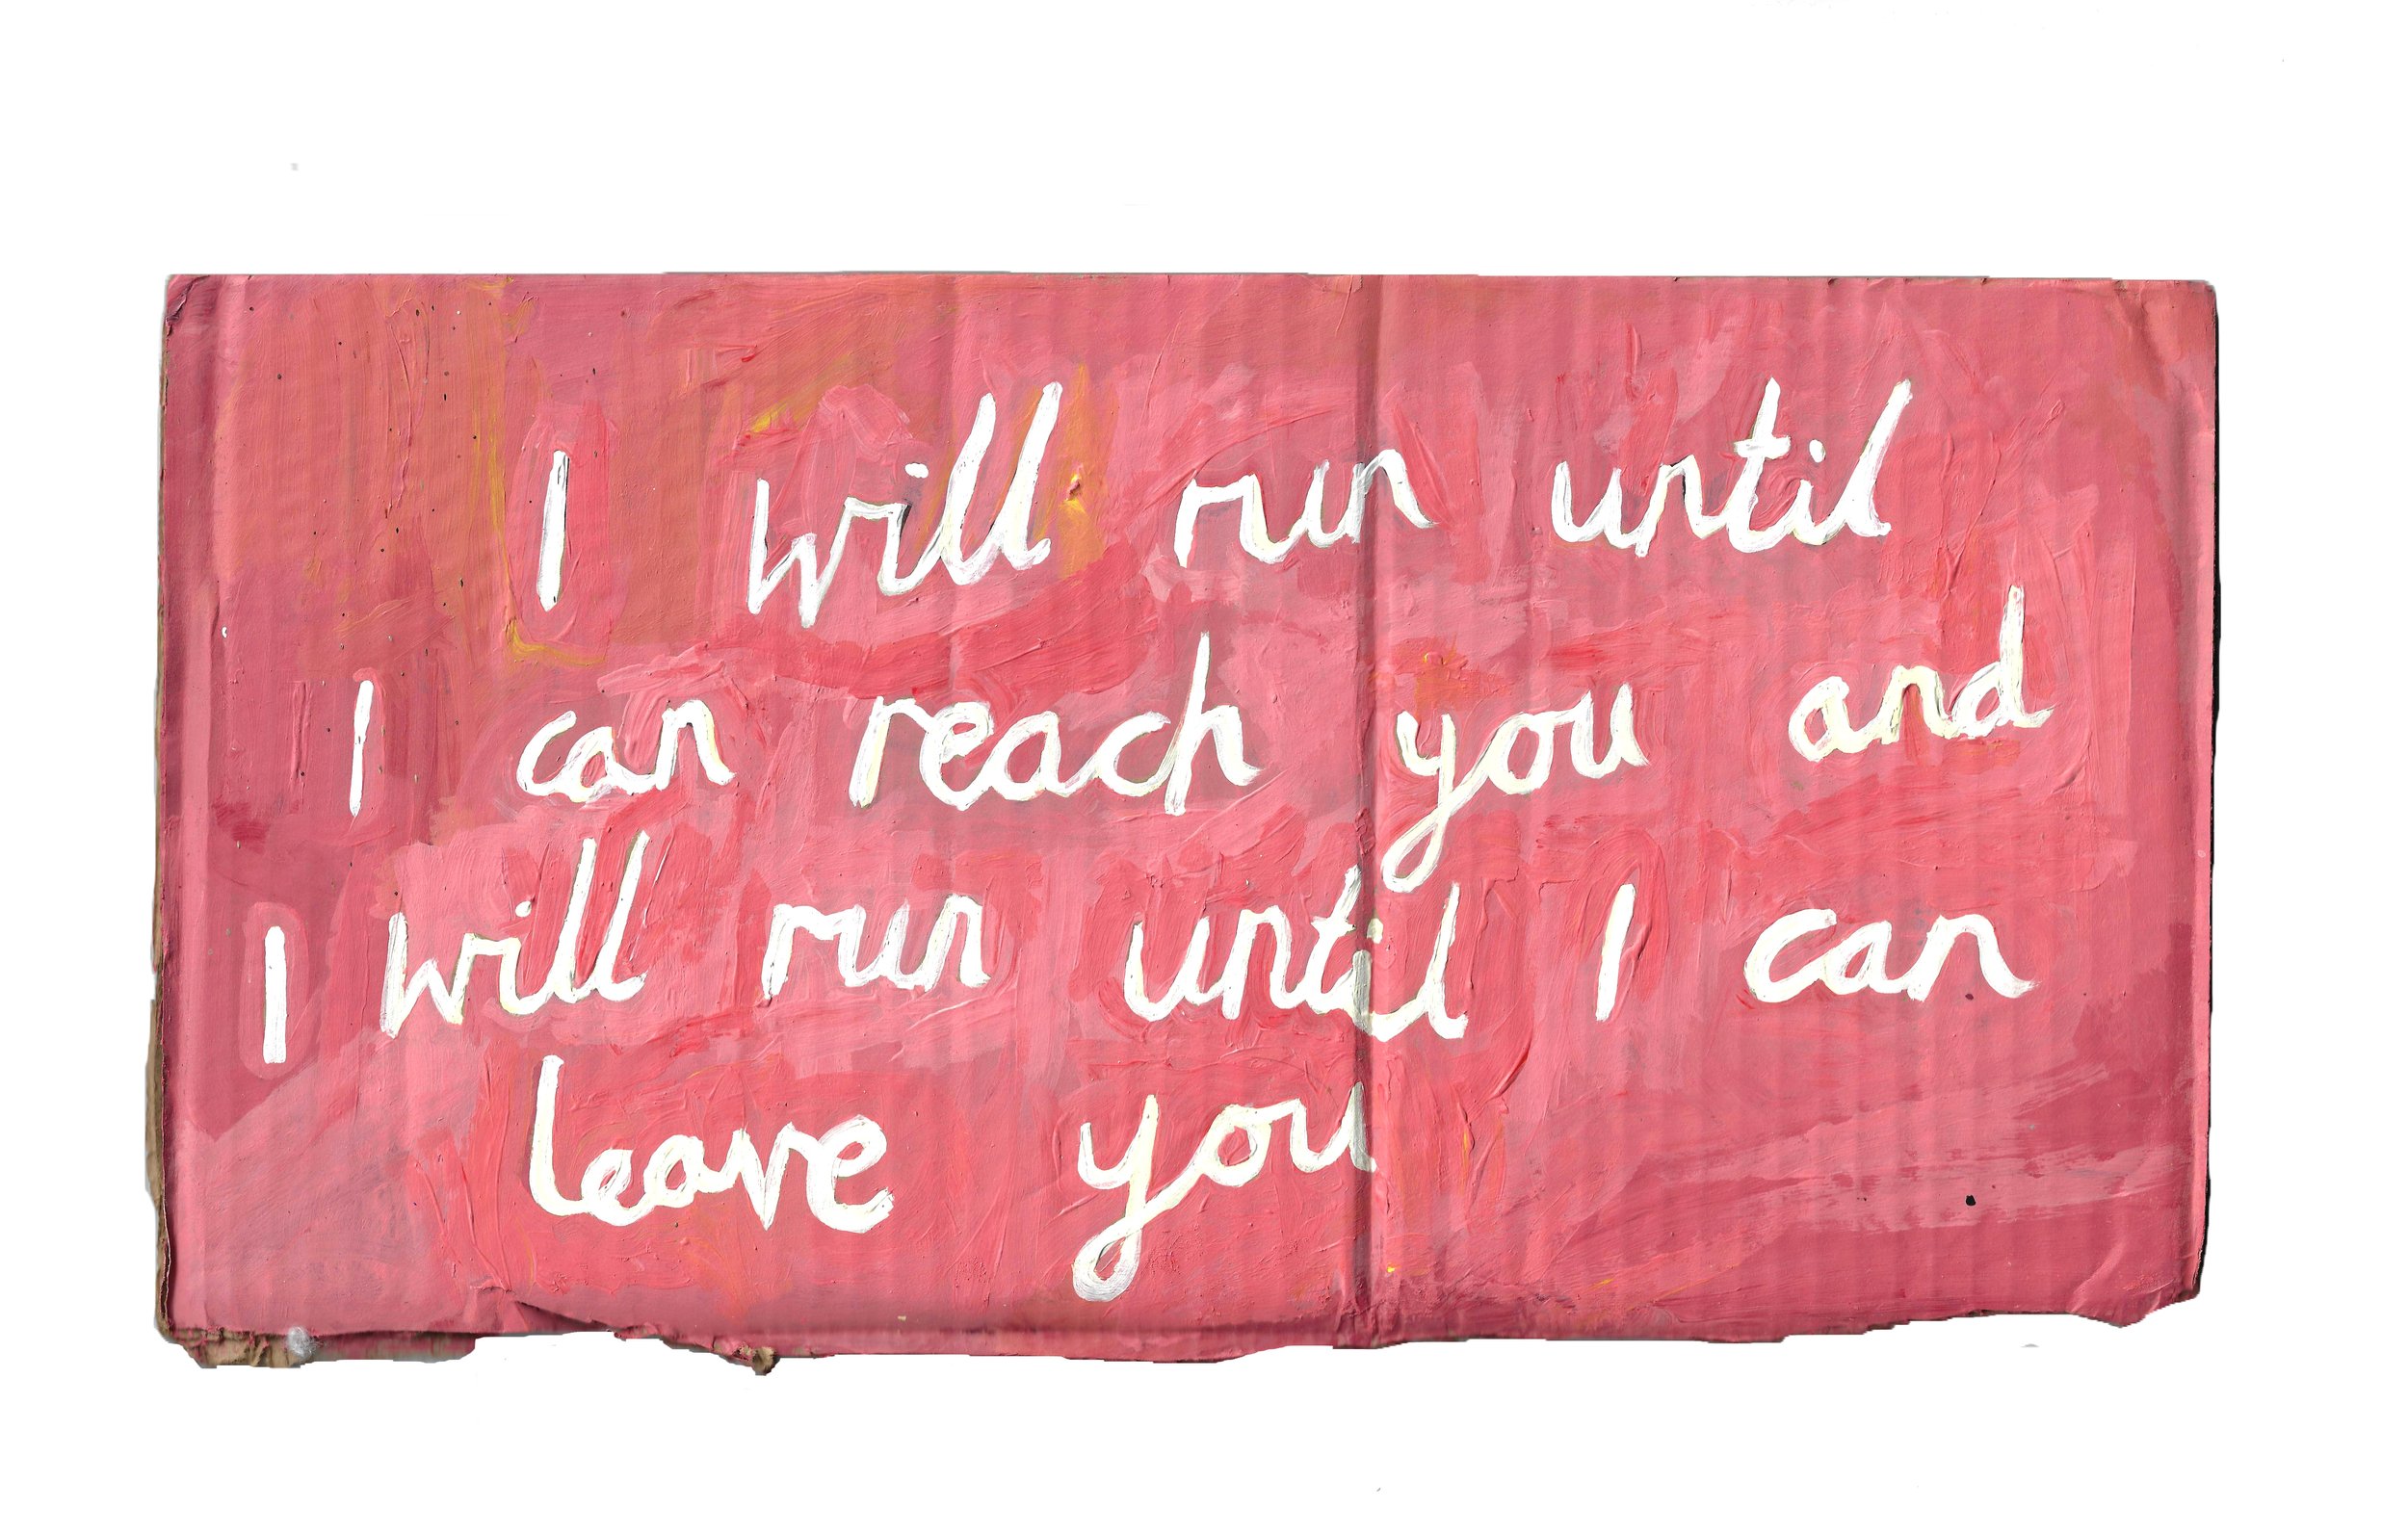 I will run until
I can reach you and
I will run until I can
leave you